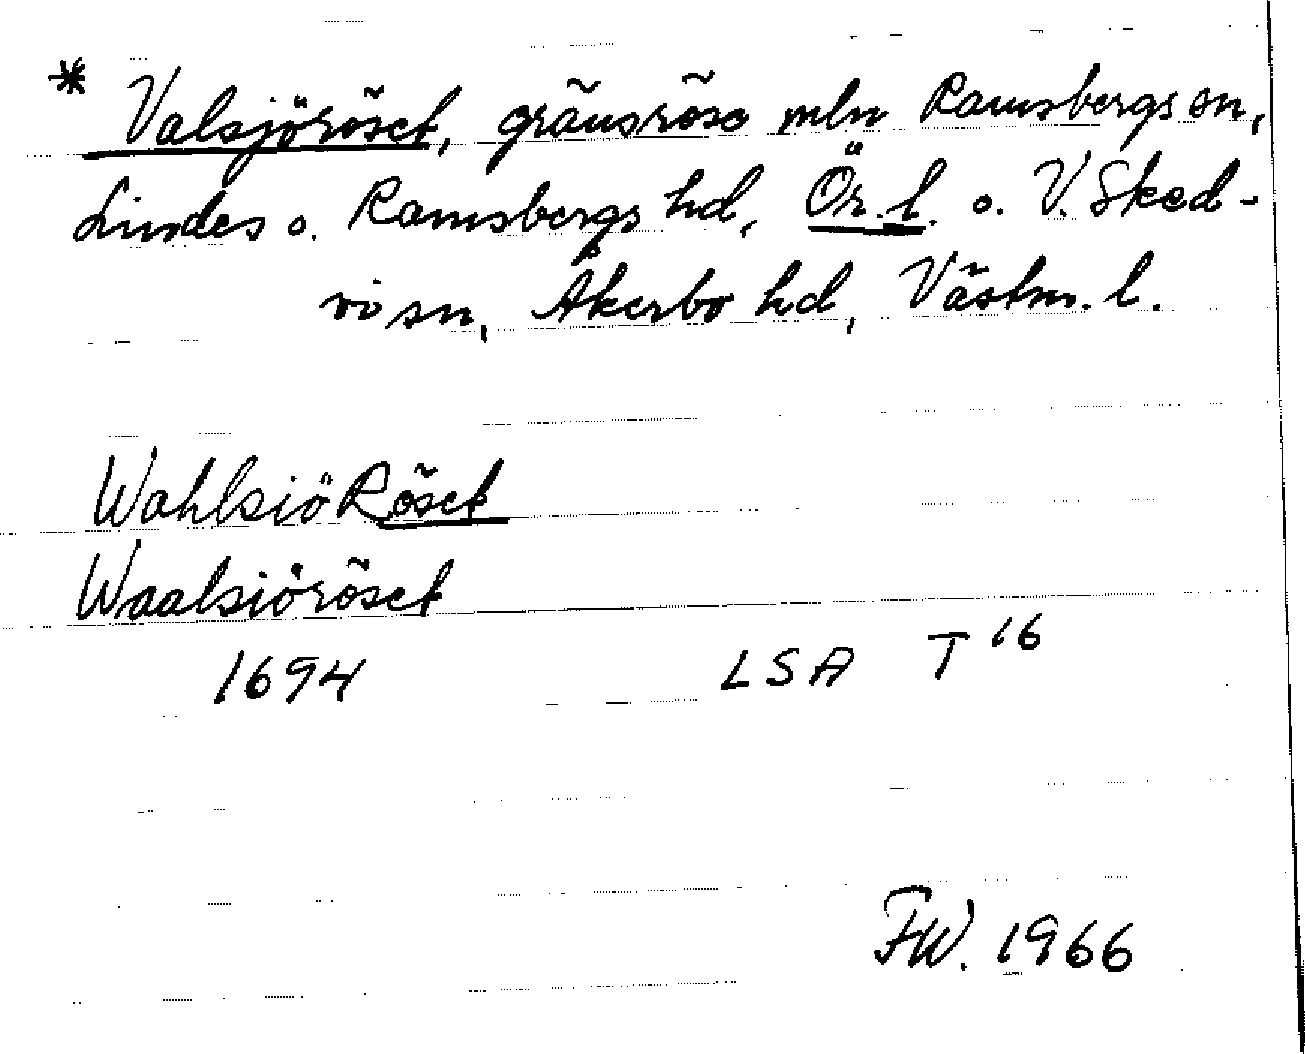 * Valsjöröset, gränsröse mln Ramsbergs sn,
Lindes o. Ramsbergs hd, Ör. l. o. V. Sked-
vi sn, Åkerbo hd, Västm. l.
Wahlsiö Röset
Waalsiöröset
1694 LSA T 16
FW. 1966